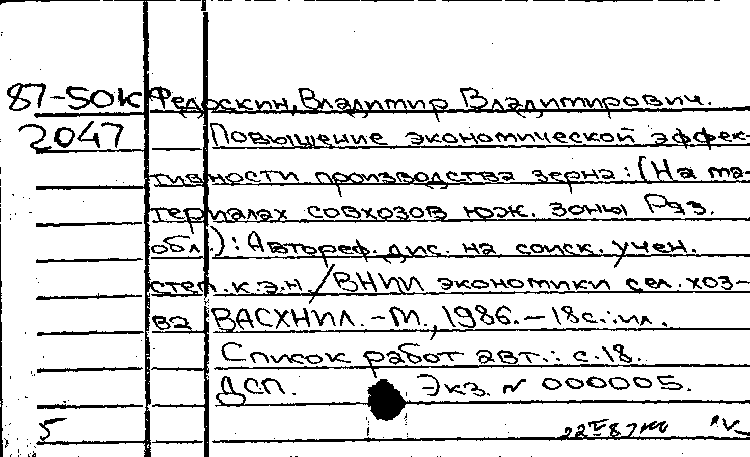 87-50к Федоскин, Владимир Владимирович.
2047 Повышение экономической эффек-
тивности производства зерна: (На ма-
териалах совхозов юж. зоны Ряз.
обл.): Автореф. дис. на соиск. учен.
степ. к.э.н. / ВНИИ экономики сел. хоз-
ва ВАСХНИЛ. - М., 1986. - 18с.: ил.
Список работ авт.: с. 18.
ДСП. Экз. N 000005.
5